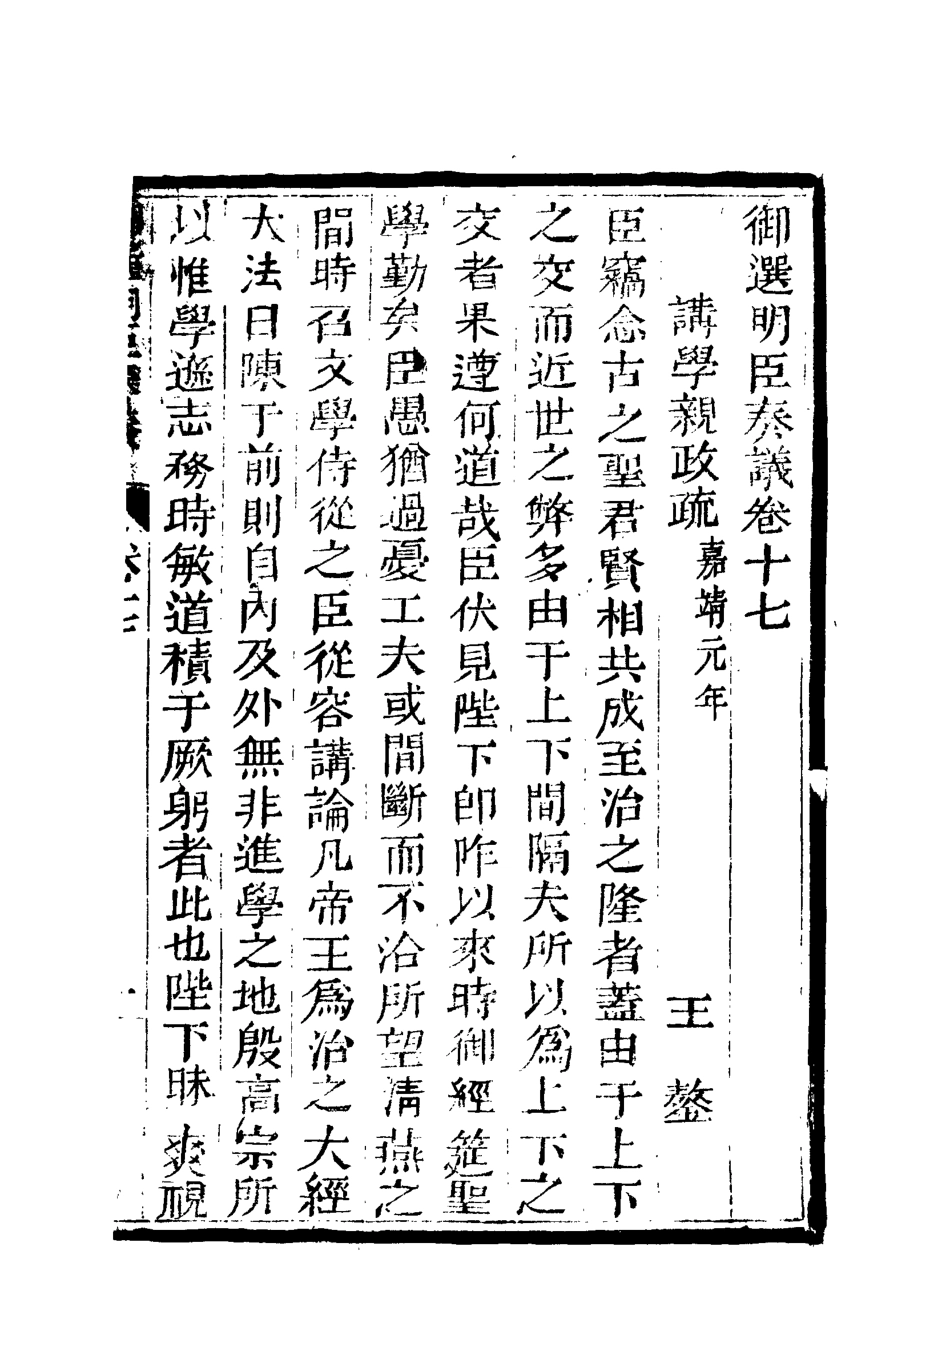 御選明臣奏議卷十七
講學親政疏 嘉靖元年 王鏊
臣竊念古之聖君賢相共成至治之隆者蓋由于上下
之交而近世之弊多由于上下間隔夫所以為上下之
交者果遵何道哉臣伏見陛下即阼以來時御經筵聖
學勤矣臣愚猶過憂工夫或間斷而不洽所望清燕之
間時召文學侍從之臣從容講論凡帝王為治之大經
大法日陳于前則自內及外無非進學之地殷高宗所
以惟學遜志務時敏道積于厥躬者此也陛下昧爽視
卷十七